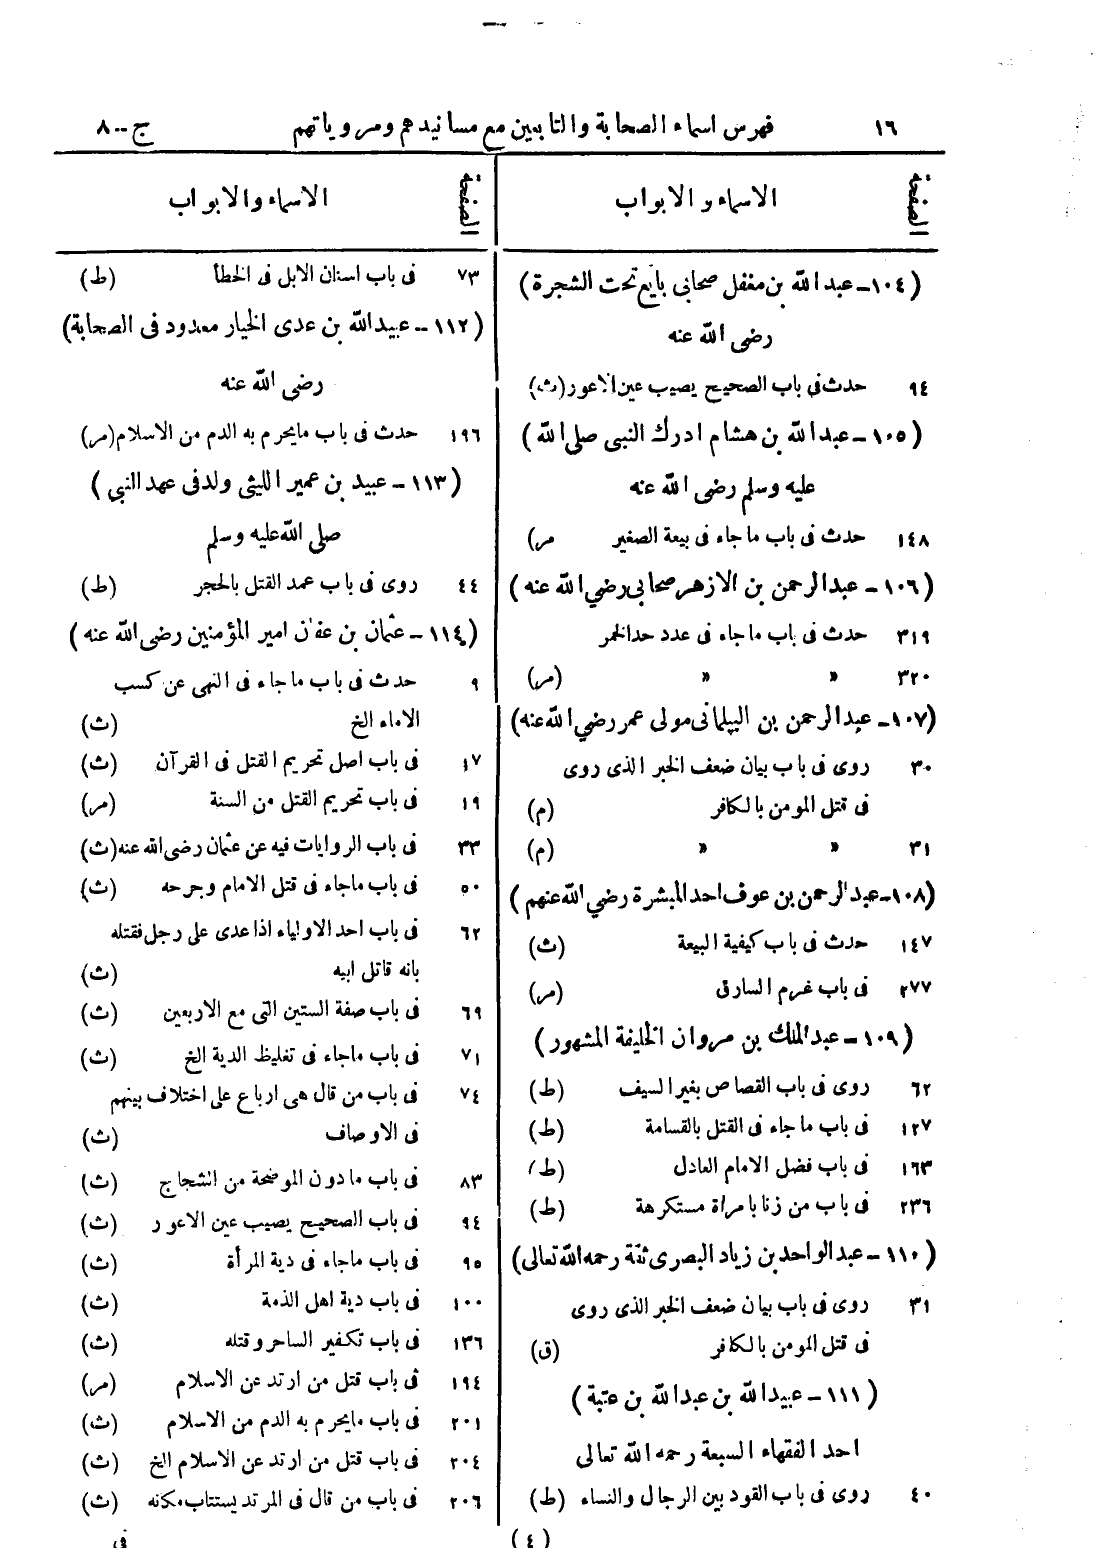 ١٦ فهرس اسماء الصحابة والتابعين مع مسانيدهم ومروياتهم ج-٨
الصفحة الاسماء والابواب
(١٠٤-عبدالله بن مغفل صحابى بايع تحت الشجرة)
رضى الله عنه
٩٤ حدث فى باب الصحيح يصيب عين الاعور (ث)
(١٠٥-عبدالله بن هشام ادرك النبى صلى الله)
عليه وسلم رضى الله عنه
١٤٨ حدث فى باب ماجاء فى بيعة الصغير مر)
(١٠٦- عبدالرحمن بن الازهر صحابى رضي الله عنه)
٣١٩ حدث فى باب ماجاء فى عدد حد الخمر
٣٢٠ » » (مر)
(١٠٧- عبدالرحمن بن البيلمانى مولى عمر رضي الله عنه)
٣٠ روى فى باب بيان ضعف الخبر الذى روى
فى قتل المومن بالكافر (م)
٣١ » » (م)
(١٠٨-عبدالرحمن بن عوف احد المبشرة رضي الله عنهم)
١٤٧ حدث فى باب كيفية البيعة (ث)
٢٧٧ فى باب غرم السارق (مر)
(١٠٩-عبدالملك بن مروان الخليفة المشهور)
٦٢ روى فى باب القصاص بغير السيف (ط)
١٢٧ فى باب ماجاء فى القتل بالقسامة (ط)
١٦٣ فى باب فضل الامام العادل (ط)
٢٣٦ فى باب من زنا بامراة مستكرهة (ط)
(١١٠-عبدالواحد بن زياد البصرى ثقة رحمه الله تعالى)
٣١ روى فى باب بيان ضعف الخبر الذى روى
فى قتل المومن بالكافر (ق)
(١١١-عبيدالله بن عبدالله بن عتبة)
احد الفقهاء السبعة رحمه الله تعالى
٤٠ روى فى باب القود بين الرجال والنساء (ط)
الصفحة الاسماء والابواب
٧٣ فى باب اسنان الابل فى الخطأ (ط)
(١١٢-عبيدالله بن عدى الخيار معدود فى الصحابة)
رضى الله عنه
١٩٦ حدث فى باب مايحرم به الدم من الاسلام(مر)
(١١٣-عبيد بن عمير الليثى ولد فى عهد النبى)
صلى الله عليه وسلم
٤٤ روى فى باب عمد القتل بالحجر (ط)
(١١٤-عثمان بن عفان امير المؤمنين رضى الله عنه)
٩ حدث فى باب ماجاء فى النهى عن كسب
الاماء الخ (ث)
١٧ فى باب اصل تحريم القتل فى القرآن (ث)
١٩ فى باب تحريم القتل من السنة (مر)
٣٣ فى باب الروايات فيه عن عثمان رضى الله عنه(ث)
٥٠ فى باب ماجاء فى قتل الامام وجرحه (ث)
٦٢ فى باب احد الاولياء اذا عدى على رجل فقتله
بانه قاتل ابيه (ث)
٦٩ فى باب صفة الستين التى مع الاربعين (ث)
٧١ فى باب ماجاء فى تغليظ الدية الخ (ث)
٧٤ فى باب من قال هى ارباع على اختلاف بينهم
فى الاوصاف (ث)
٨٣ فى باب مادون الموضحة من الشجاج (ث)
٩٤ فى باب الصحيح يصيب عين الاعور (ث)
٩٥ فى باب ماجاء فى دية المرأة (ث)
١٠٠ فى باب دية اهل الذمة (ث)
١٣٦ فى باب تكفير الساحر وقتله (ث)
١٩٤ فى باب قتل من ارتد عن الاسلام (مر)
٢٠١ فى باب مايحرم به الدم من الاسلام (ث)
٢٠٤ فى باب قتل من ارتد عن الاسلام الخ (ث)
٢٠٦ فى باب من قال فى المرتد يستتاب مكانه (ث)
(٤) فى